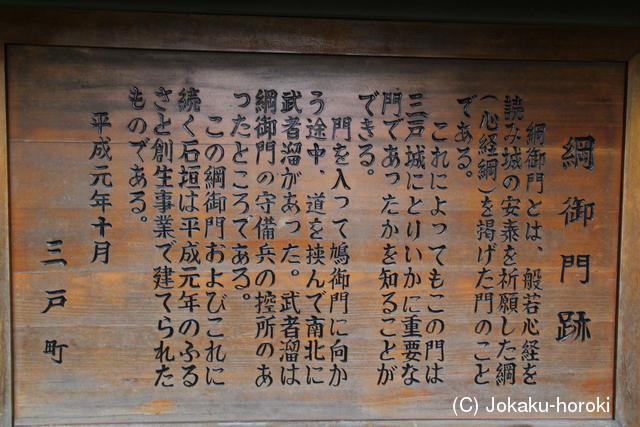 綱御門跡
綱御門とは、般若心経を
読み城の安泰を祈願した綱
（心経綱）を掲げた門のこと
である。
これによってもこの門は
三戸城にとりいかに重要な
門であったかを知ることが
できる。
門を入って鳩御門に向か
う途中、道を挟んで南北に
武者溜があった。武者溜は
綱御門の守備兵の控所のあ
ったところである。
この綱御門およびこれに
続く石垣は平成元年のふる
さと創生事業で建てられた
ものである。
平成元年十月
三戸町
(C) Jokaku-horoki